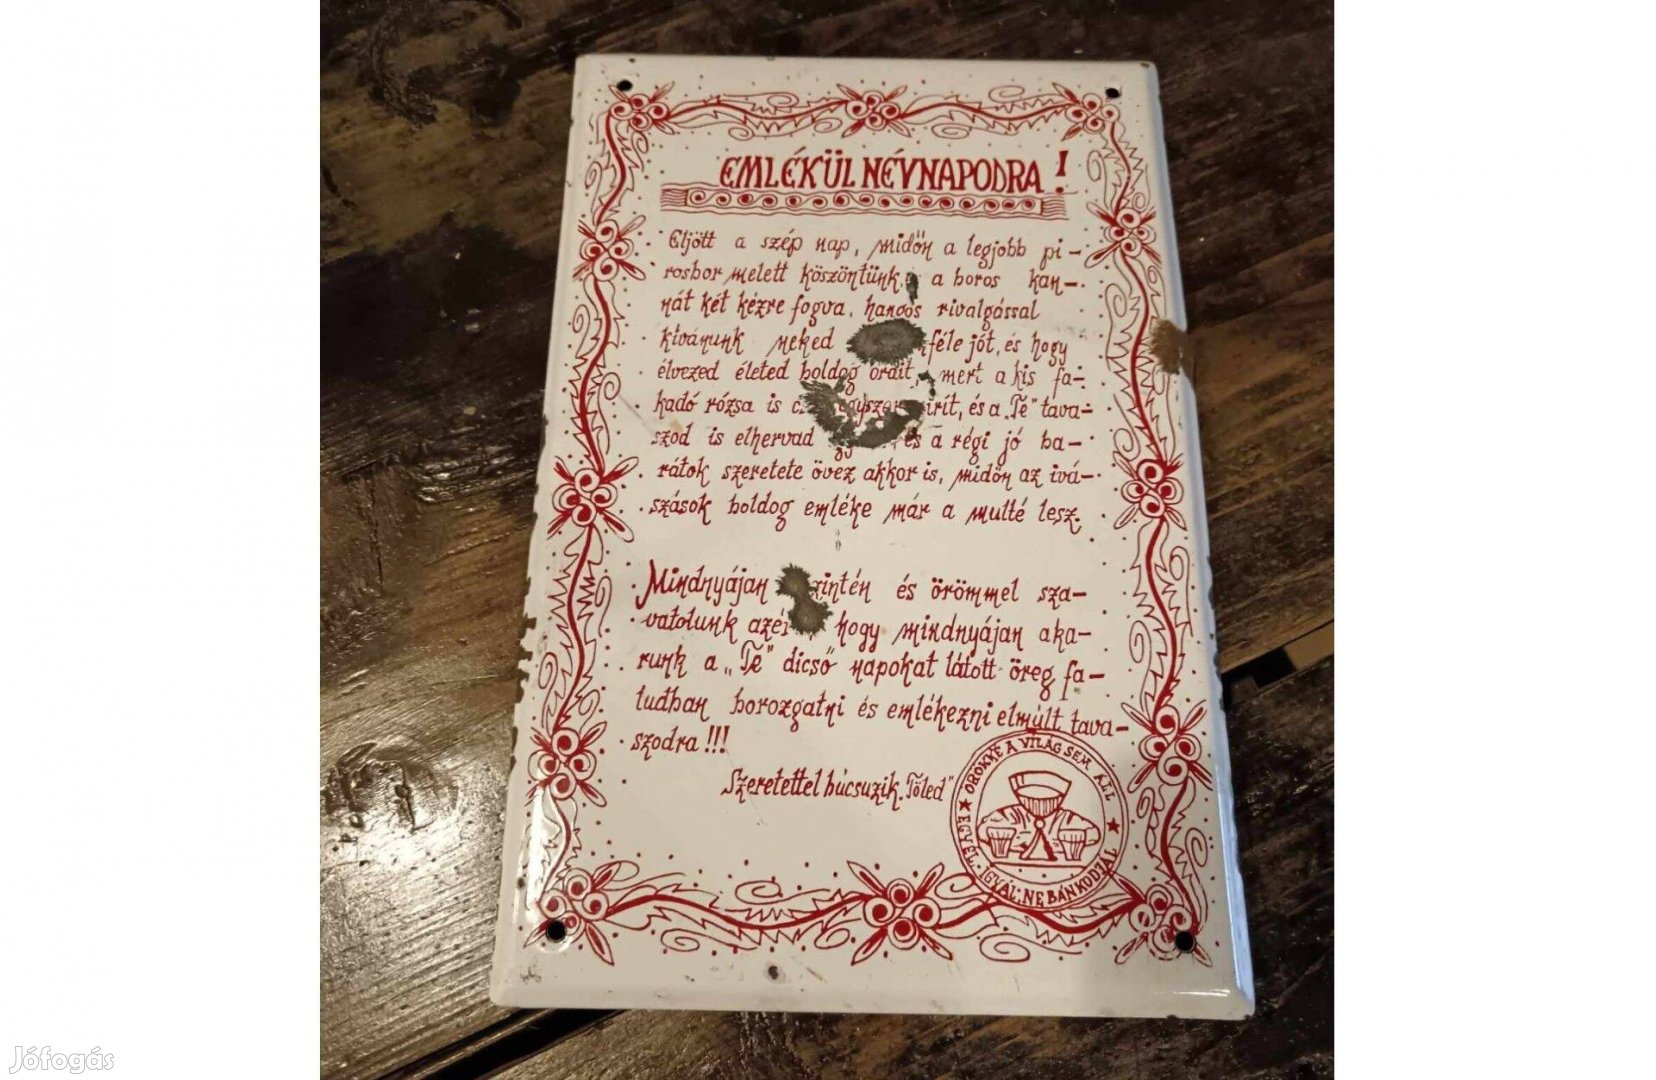 EMLÉKÜL NÉVNAPODRA!
Eljött a szép nap, midőn a legjobb pi-
rosbor melett köszöntünk, a boros kan-
nát két kézre fogva, hangos rivalgással
kívánunk neked féle jót, és hogy
élvezed életed boldog óráit, mert a kis fa-
kadó rózsa is egyszer és a „Te" tava-
szod is elhervad és a régi jó ba-
rátok szeretete övez akkor is, midőn az ivá-
szások boldog emléke már a multé lesz.
Mindnyájan és örömmel sza-
vatolunk hogy mindnyájan aka-
runk a „Te" dicső napokat látott öreg fa-
ludban borozgatni és emlékezni elmúlt tava-
szodra!!!
Szeretettel búcsuzik „Tőled"
ÖRÖKKÉ A VILÁG SEM ÁLL
★ EGYÉL · IGYÁL · NE BÁNKODJÁL ★
Jófogás